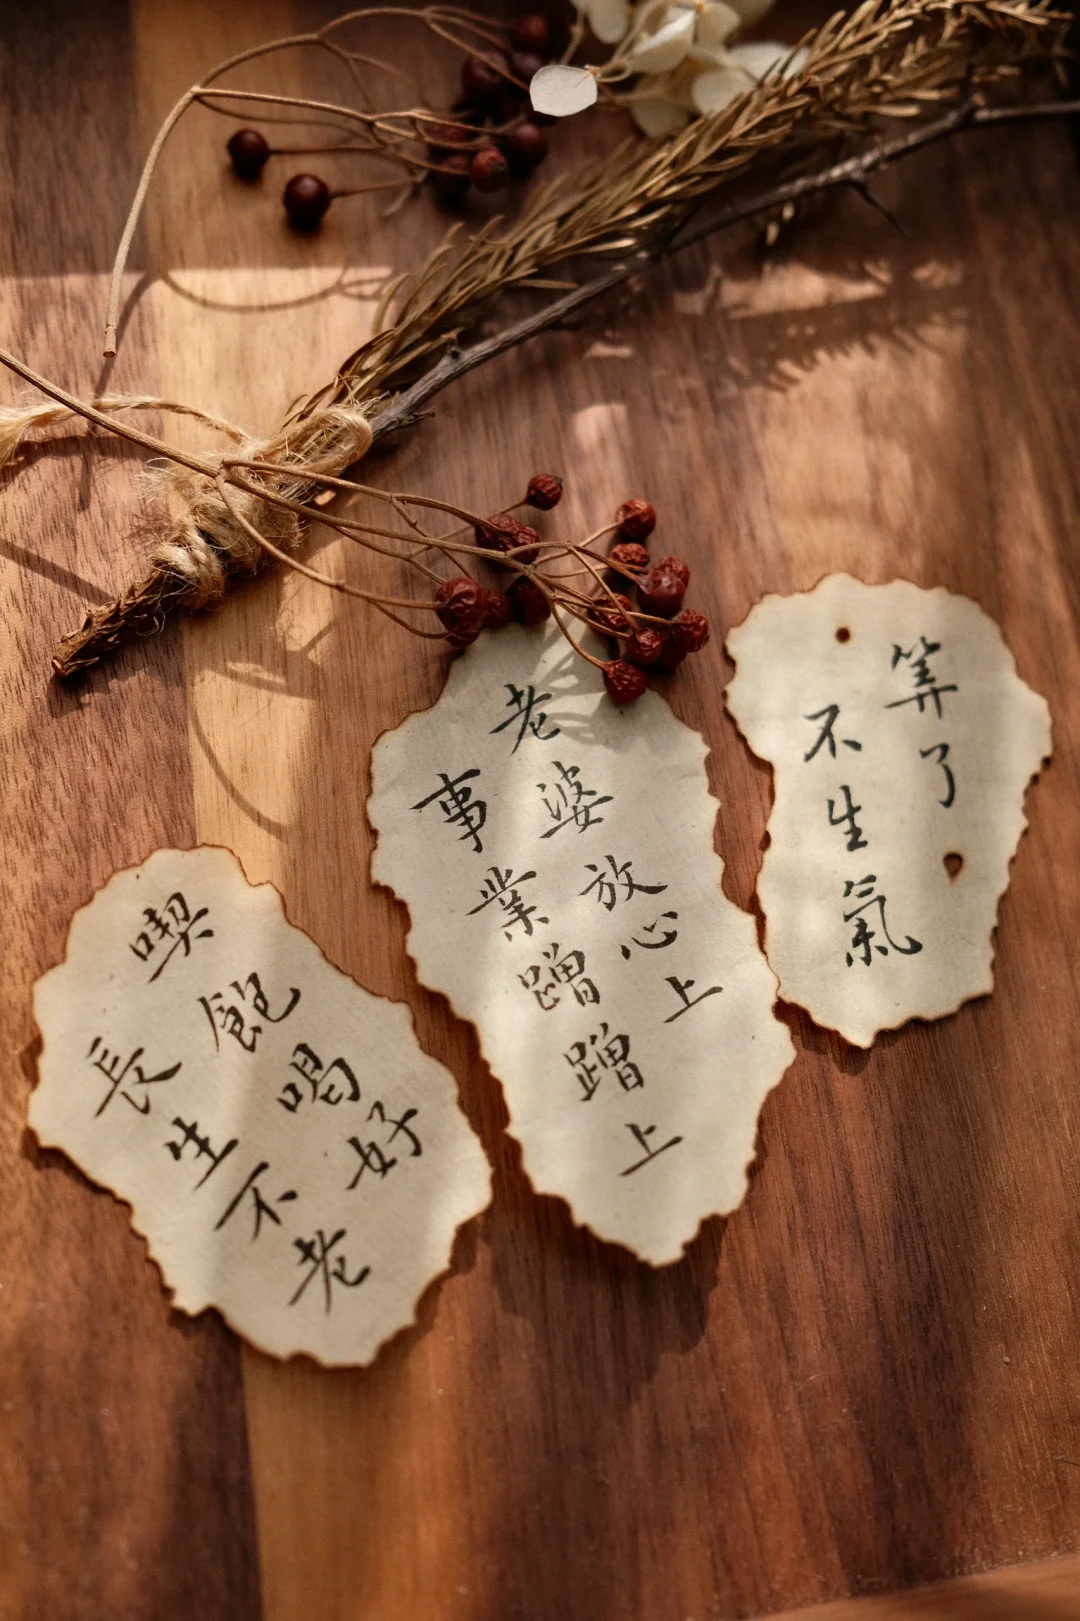 算了
不生氣
老婆放心上
事業蹭蹭上
喫飽喝好
長生不老